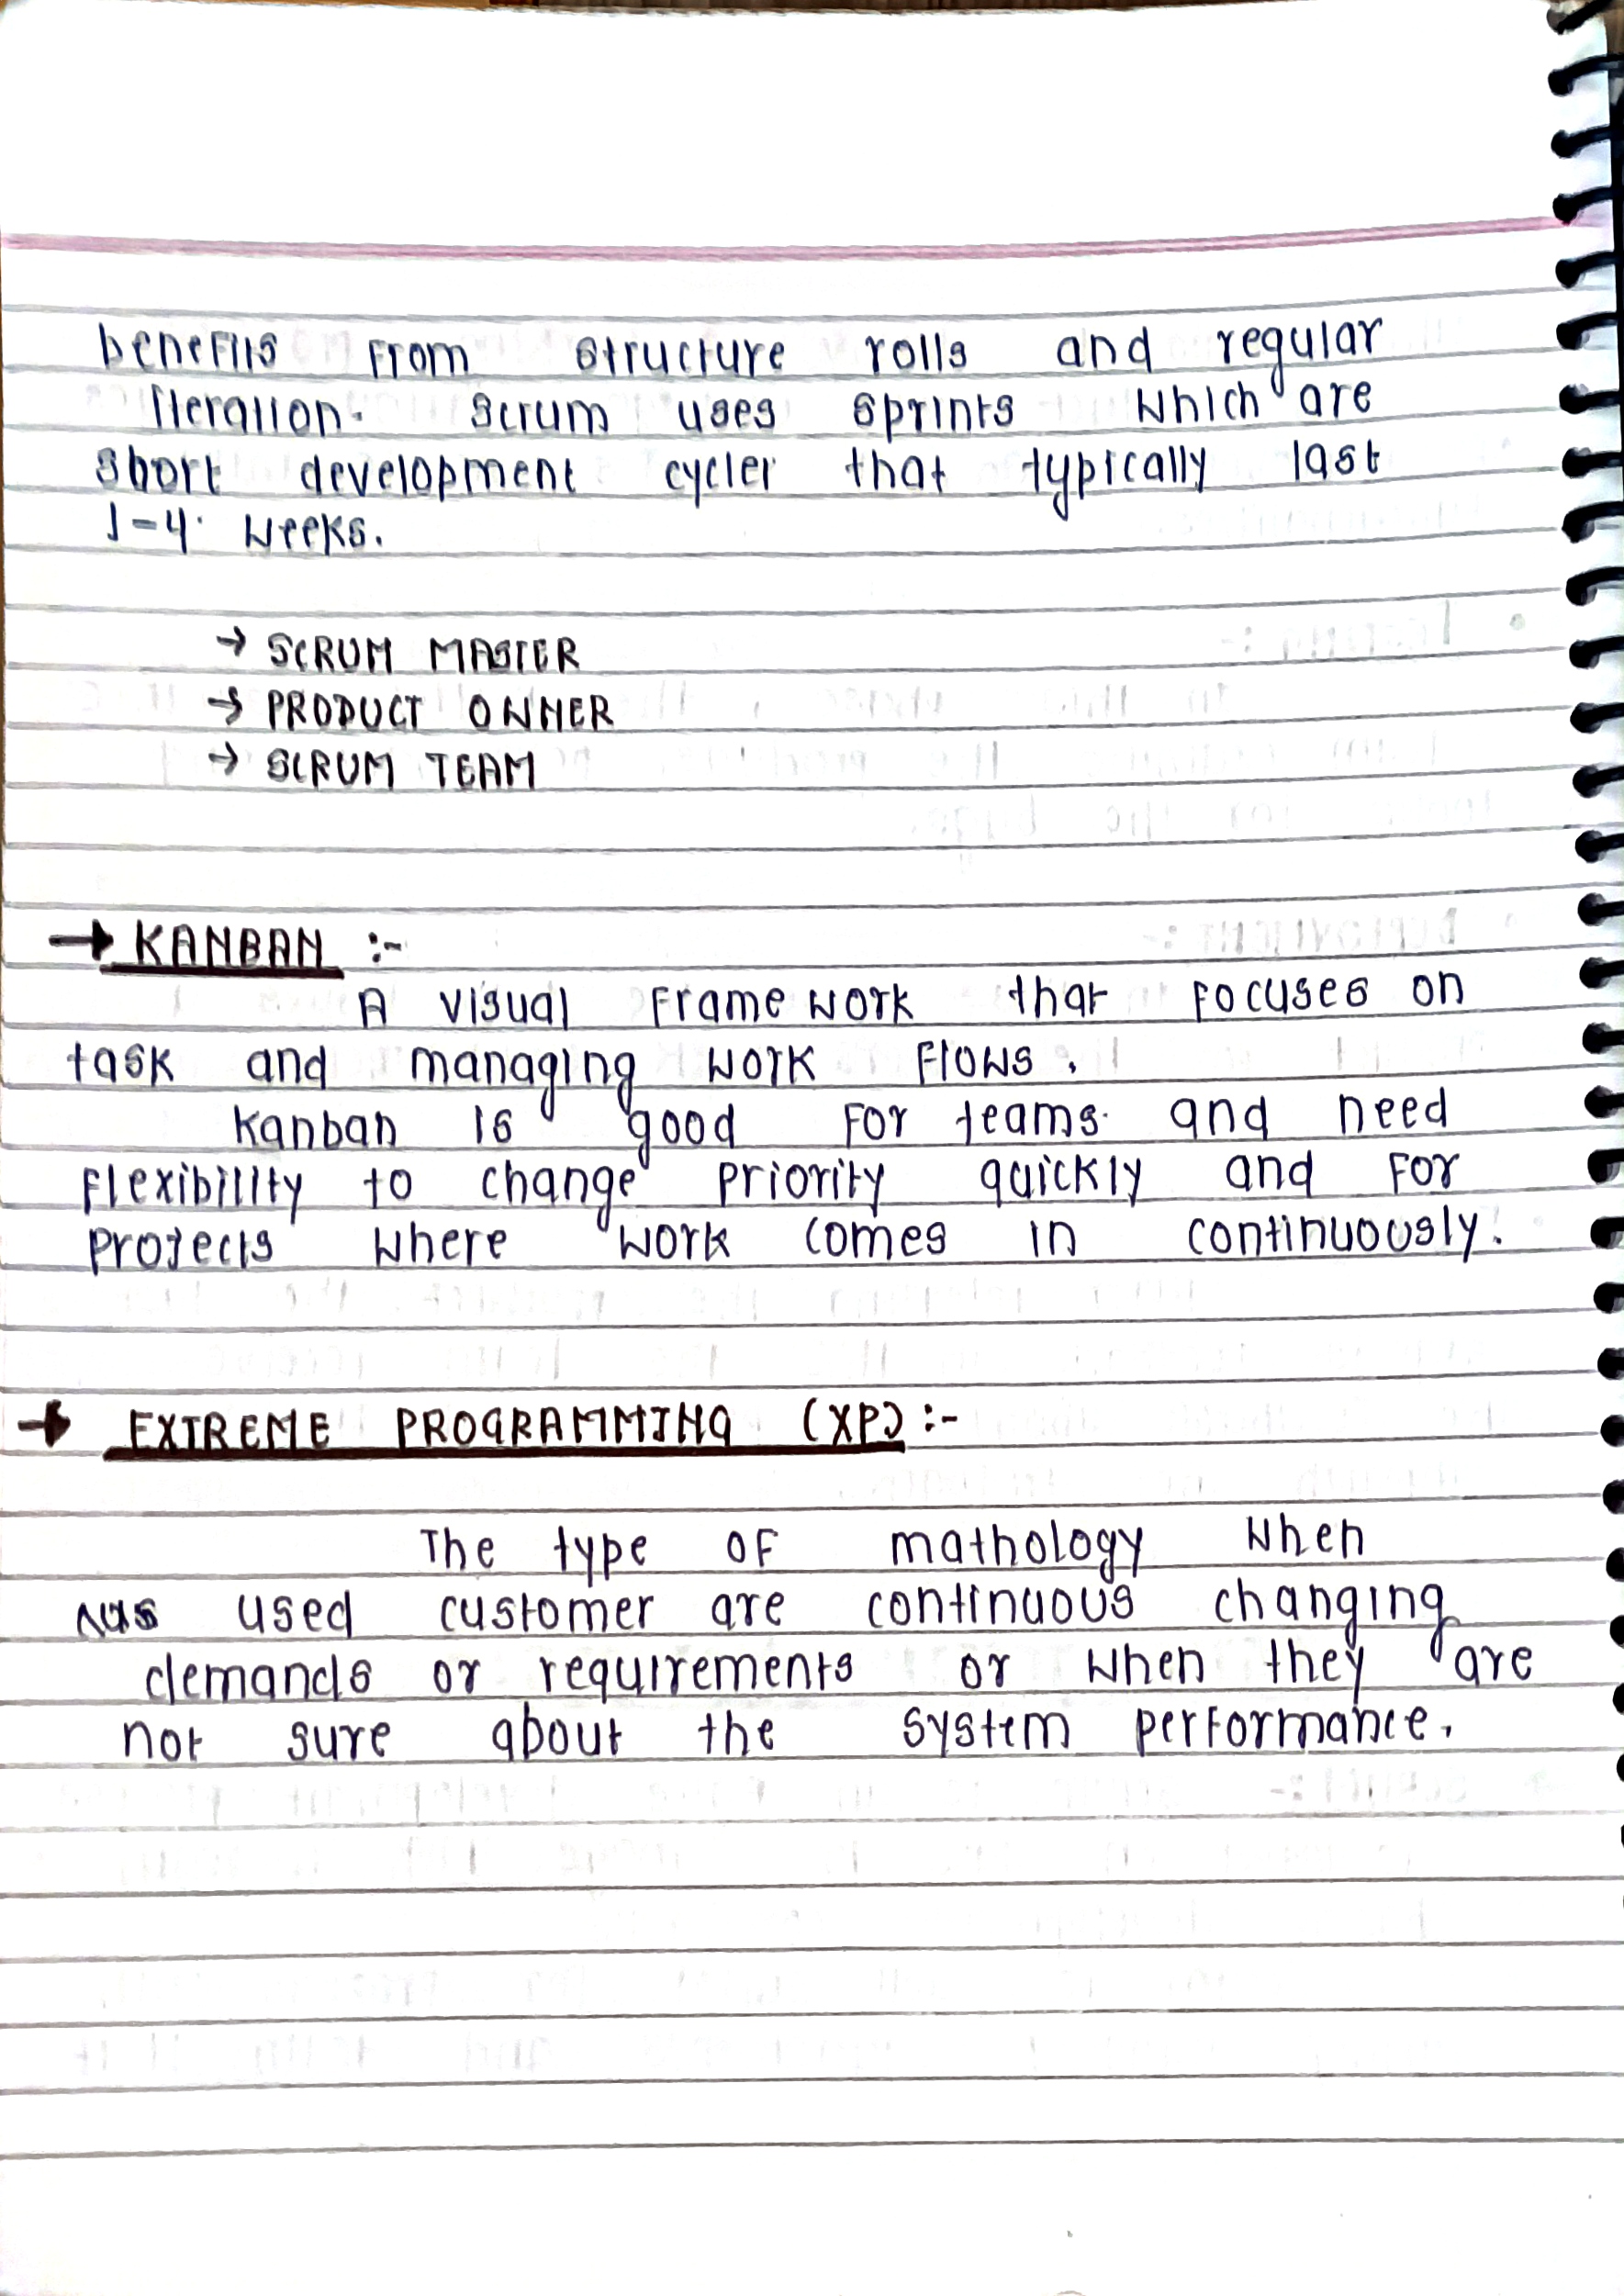 benefits from structure rolls and regular
iteration. scrum uses sprints which are
short development cycler that typically last
1-4 weeks.
→ SCRUM MASTER
→ PRODUCT OWNER
→ SCRUM TEAM
→ KANBAN :-
A visual frame work that focuses on
task and managing work flows.
Kanban is good for teams. and need
flexibility to change priority quickly and for
projects where work comes in continuously.
→ EXTREME PROGRAMMING (XP) :-
The type of mathology when
used customer are continuous changing
demands or requirements or when they are
not sure about the system performance.